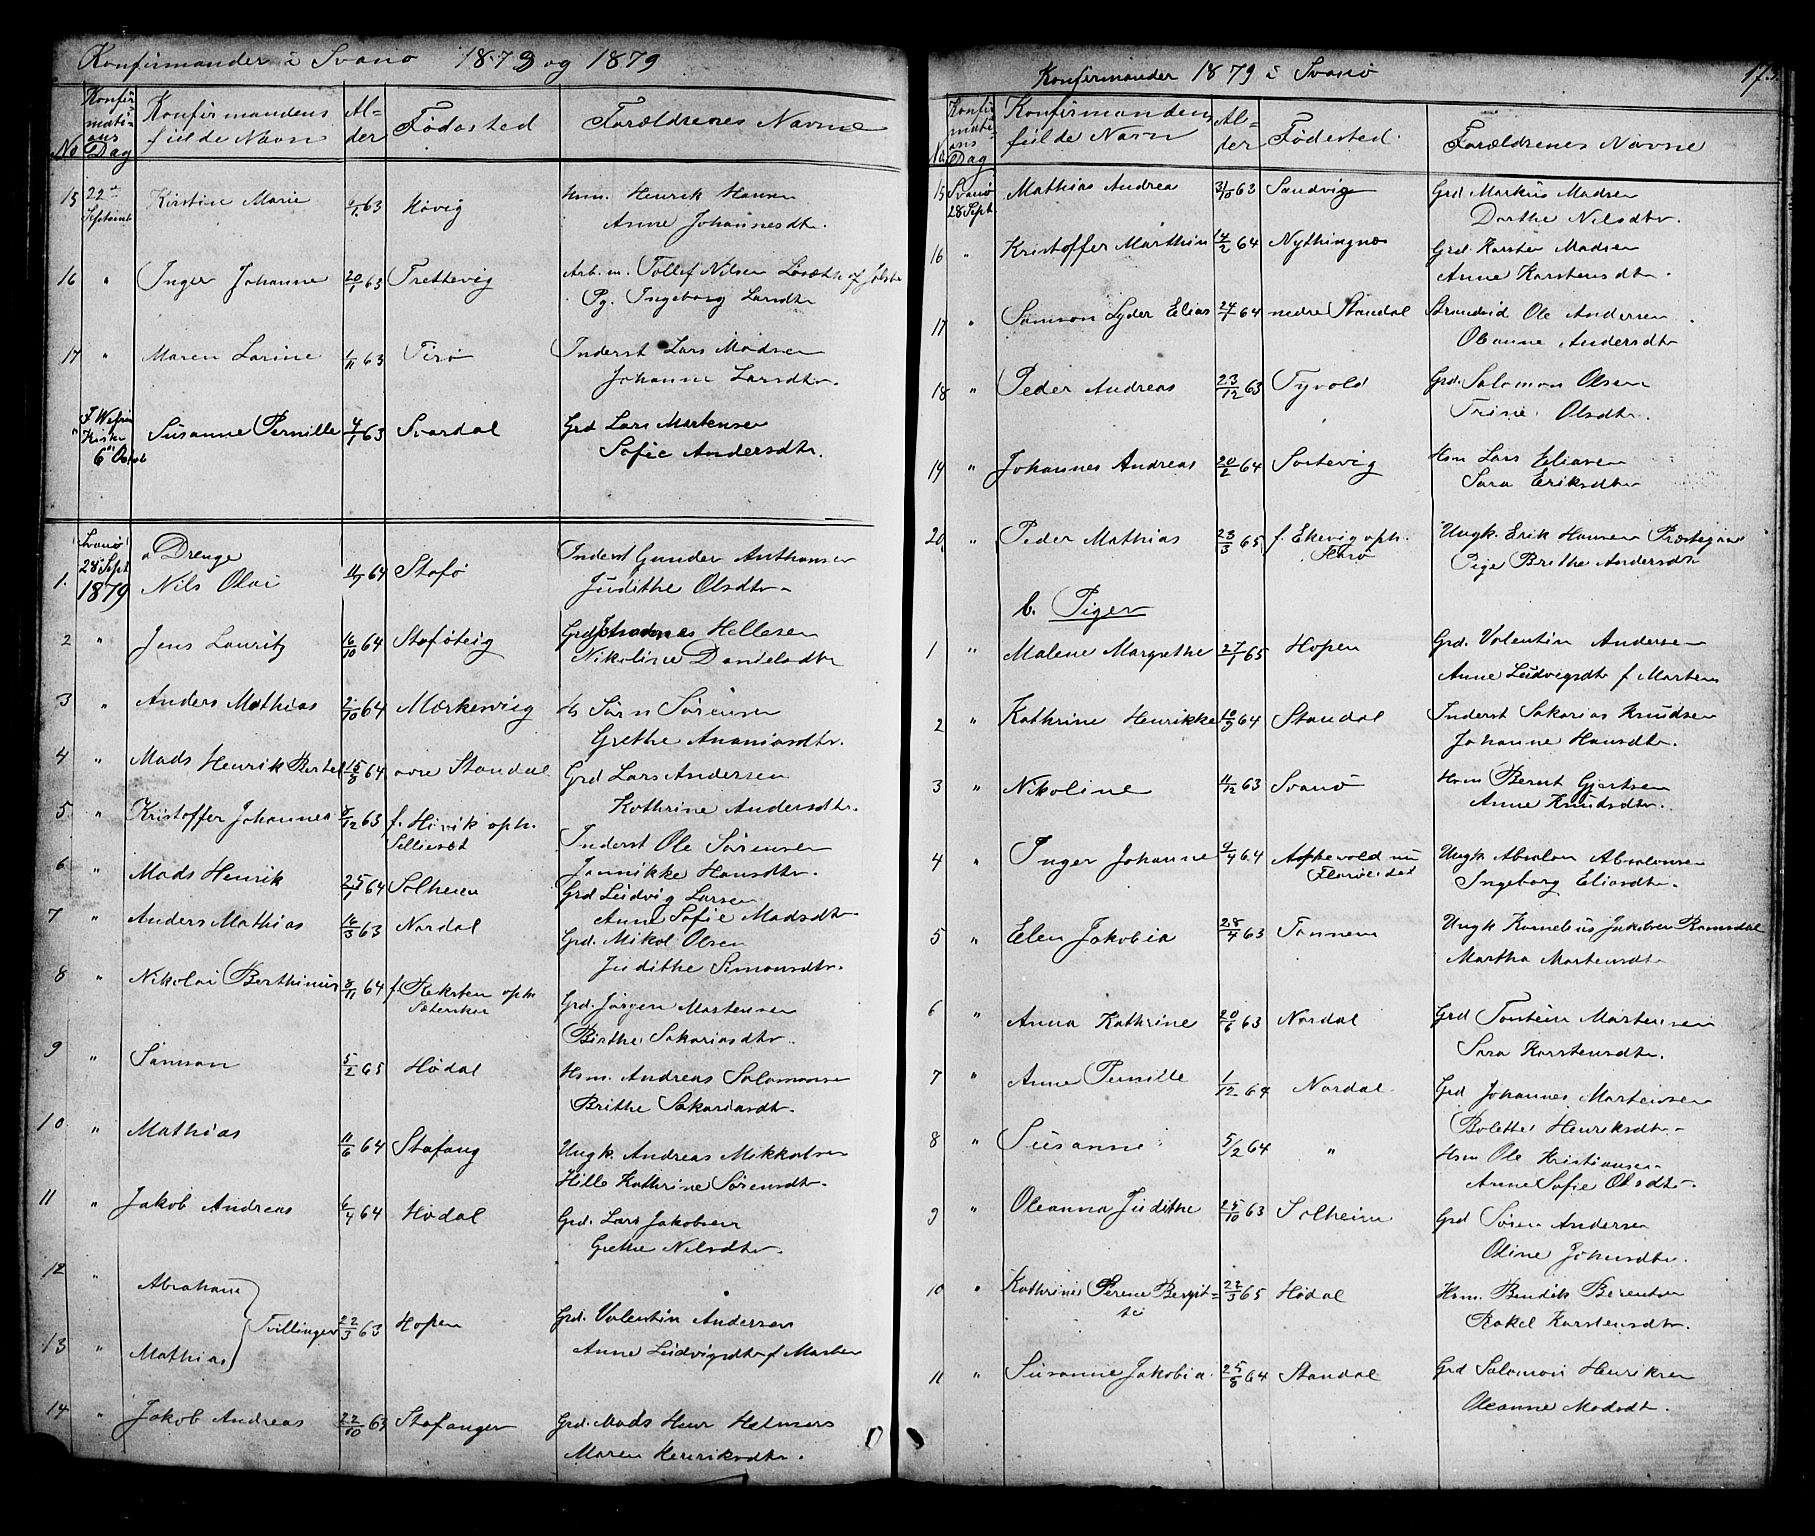 Konfirmander i Svanø 1878 og 1879
No Konfirmations Dag Konfirmandens fulde Navn Alder Fødested Forældrenes Navne
15 22de September Kirstine Marie 63 Høvig Hsm. Henrik Hansen
Anne Johannesdtr.
16 " Inger Johanne 20/1 63 Trettevig Arb.m. Tollef Nilsen af Jølster
Pg. Ingeborg Larsdtr
17 " Maren Larine 1/11 63 Tirø Inderst Lars Madsen
Johanne Larsdtr.
" Kirke 6te Octob Susanne Pernille 4/1 63 Svardal Grd Lars Martensen
Sofie Andersdtr.
Svanø 28 Sept 1879
a Drenge
1. Nils Olai 64 Stafø Inderst Gunder Anthonsen
Judithe Olsdtr
2 " Jens Lauritz 16/10 64 Staføteig Grd Johannes Hellesen
Nikoline Danielsdtr
3 " Anders Mathias 2/10 64 Mærkesvig Hs Sørn Sørensen
Grethe Ananiasdtr.
4 " Mads Henrik Bertel 15/8 64 øvre Standal Grd Lars Andersen
Kathrine Andersdtr.
5 " Kristoffer Johannes 12 63 f. Hövik oph. Inderst Ole Sørensen
Jannikke Hansdtr.
6 " Mads Henrik 64 Solheim Grd Ludvig Larsen
Anne Sofie Madsdtr
7 " Anders Mathias 16/3 63 Nordal Grd. Mikal Olsen
Judithe Simonsdtr.
8 " Nikolai Berthinus 8/11 64 f Reksten oph Grd. Jørgen Martensen
Birthe Sakariasdtr.
9 " Samson 5/2 65 Hødal Hsm. Andreas Salomonsen
Brithe Sakariasdtr.
10 " Mathias 11/6 64 Stafang Ungk. Andreas Mikkalsen
Hille Kathrine Sørensdtr.
11 " Jakob Andreas 6/4 64 Hødal Grd. Lars Jakobsen
Grethe Nilsdtr.
12 " Abraham
Tvillinger 22/3 63 Hopen Grd. Valentin Andersen
13 " Mathias Anne Ludvigsdtr f Marten
14 " Jakob Andreas 22/10 63 Stafanger Grd. Mads Henr Helmers
Maren Henriksdtr.
Konfirmander 1879 i Svanø
No Konfirmations Dag Konfirmandens fulde Navn Alder Fødested Forældrenes Navne
15 Svanø 28 Sept Mathias Andrea 31/10 63 Sandvig Grd Markus Madsen
Dorthe Nilsdtr.
16 " Kristoffer Marthin 14/2 64 Nythingnes Grd. Karsten Madsen
Anne Karstensdtr.
17 " Samson Lyder Elias 64 nedre Standal Strandsid Ole Andersen
Oleanne Andersdtr
18 " Peder Andreas 23/12 63 Tyvold Grd. Salomon Olsen
Trine Olsdtr.
19 " Johannes Andreas 20/2 64 Sortevig Hsm Lars Eliasen
Sara Eriksdtr
20 " Peder Mathias 23/3 65 f. Ekevig oph. Ungk. Erik Hansen
Pige Brithe Andersdtr
b. Piger
1 " Malene Margrethe 27/1 65 Hopen Grd. Valentin Andersen
Anne Ludvigsdtr f Marten
2 " Kathrine Henrikke 10/9 64 Standal Inderst Sakarias Knudsen
Johanne Hansdtr.
3 " Nikoline 11/12 63 Svanø Hsm Bernt Gjertsen
Anne Knudsdtr.
4 " Inger Johanne 9/4 64 Askevold nu Ungk. Absalon Absalonsen
Ingeborg Eliasdtr.
5 " Elen Jakobia 28/4 63 Tonnem Ungk Kornelius Jakobsen Ramsdal
Martha Martensdtr
6 " Anna Kathrine 20/6 63 Nordal Grd Tostein Martensen
Sara Karstensdtr.
7 " Anne Pernille 1/12 64 Nordal Grd Johannes Martensen
Bolette Henriksdtr
8 " Susanne 5/2 64 " Hsm Ole Kristiansen
Anne Sofie Olsdtr.
9 " Oleanna Judithe 25/10 63 Solheim Grd Søren Andersen
Oline Johnsdtr.
10 " Kathrine Serene Bergitte 22/3 65 Hødal Hsm. Bendik Berentsen
Rakel Karstensdtr.
11 " Susanne Jakobia 25/8 64 Standal Grd Salomon Henriksen
Oleanne Madsdtr.